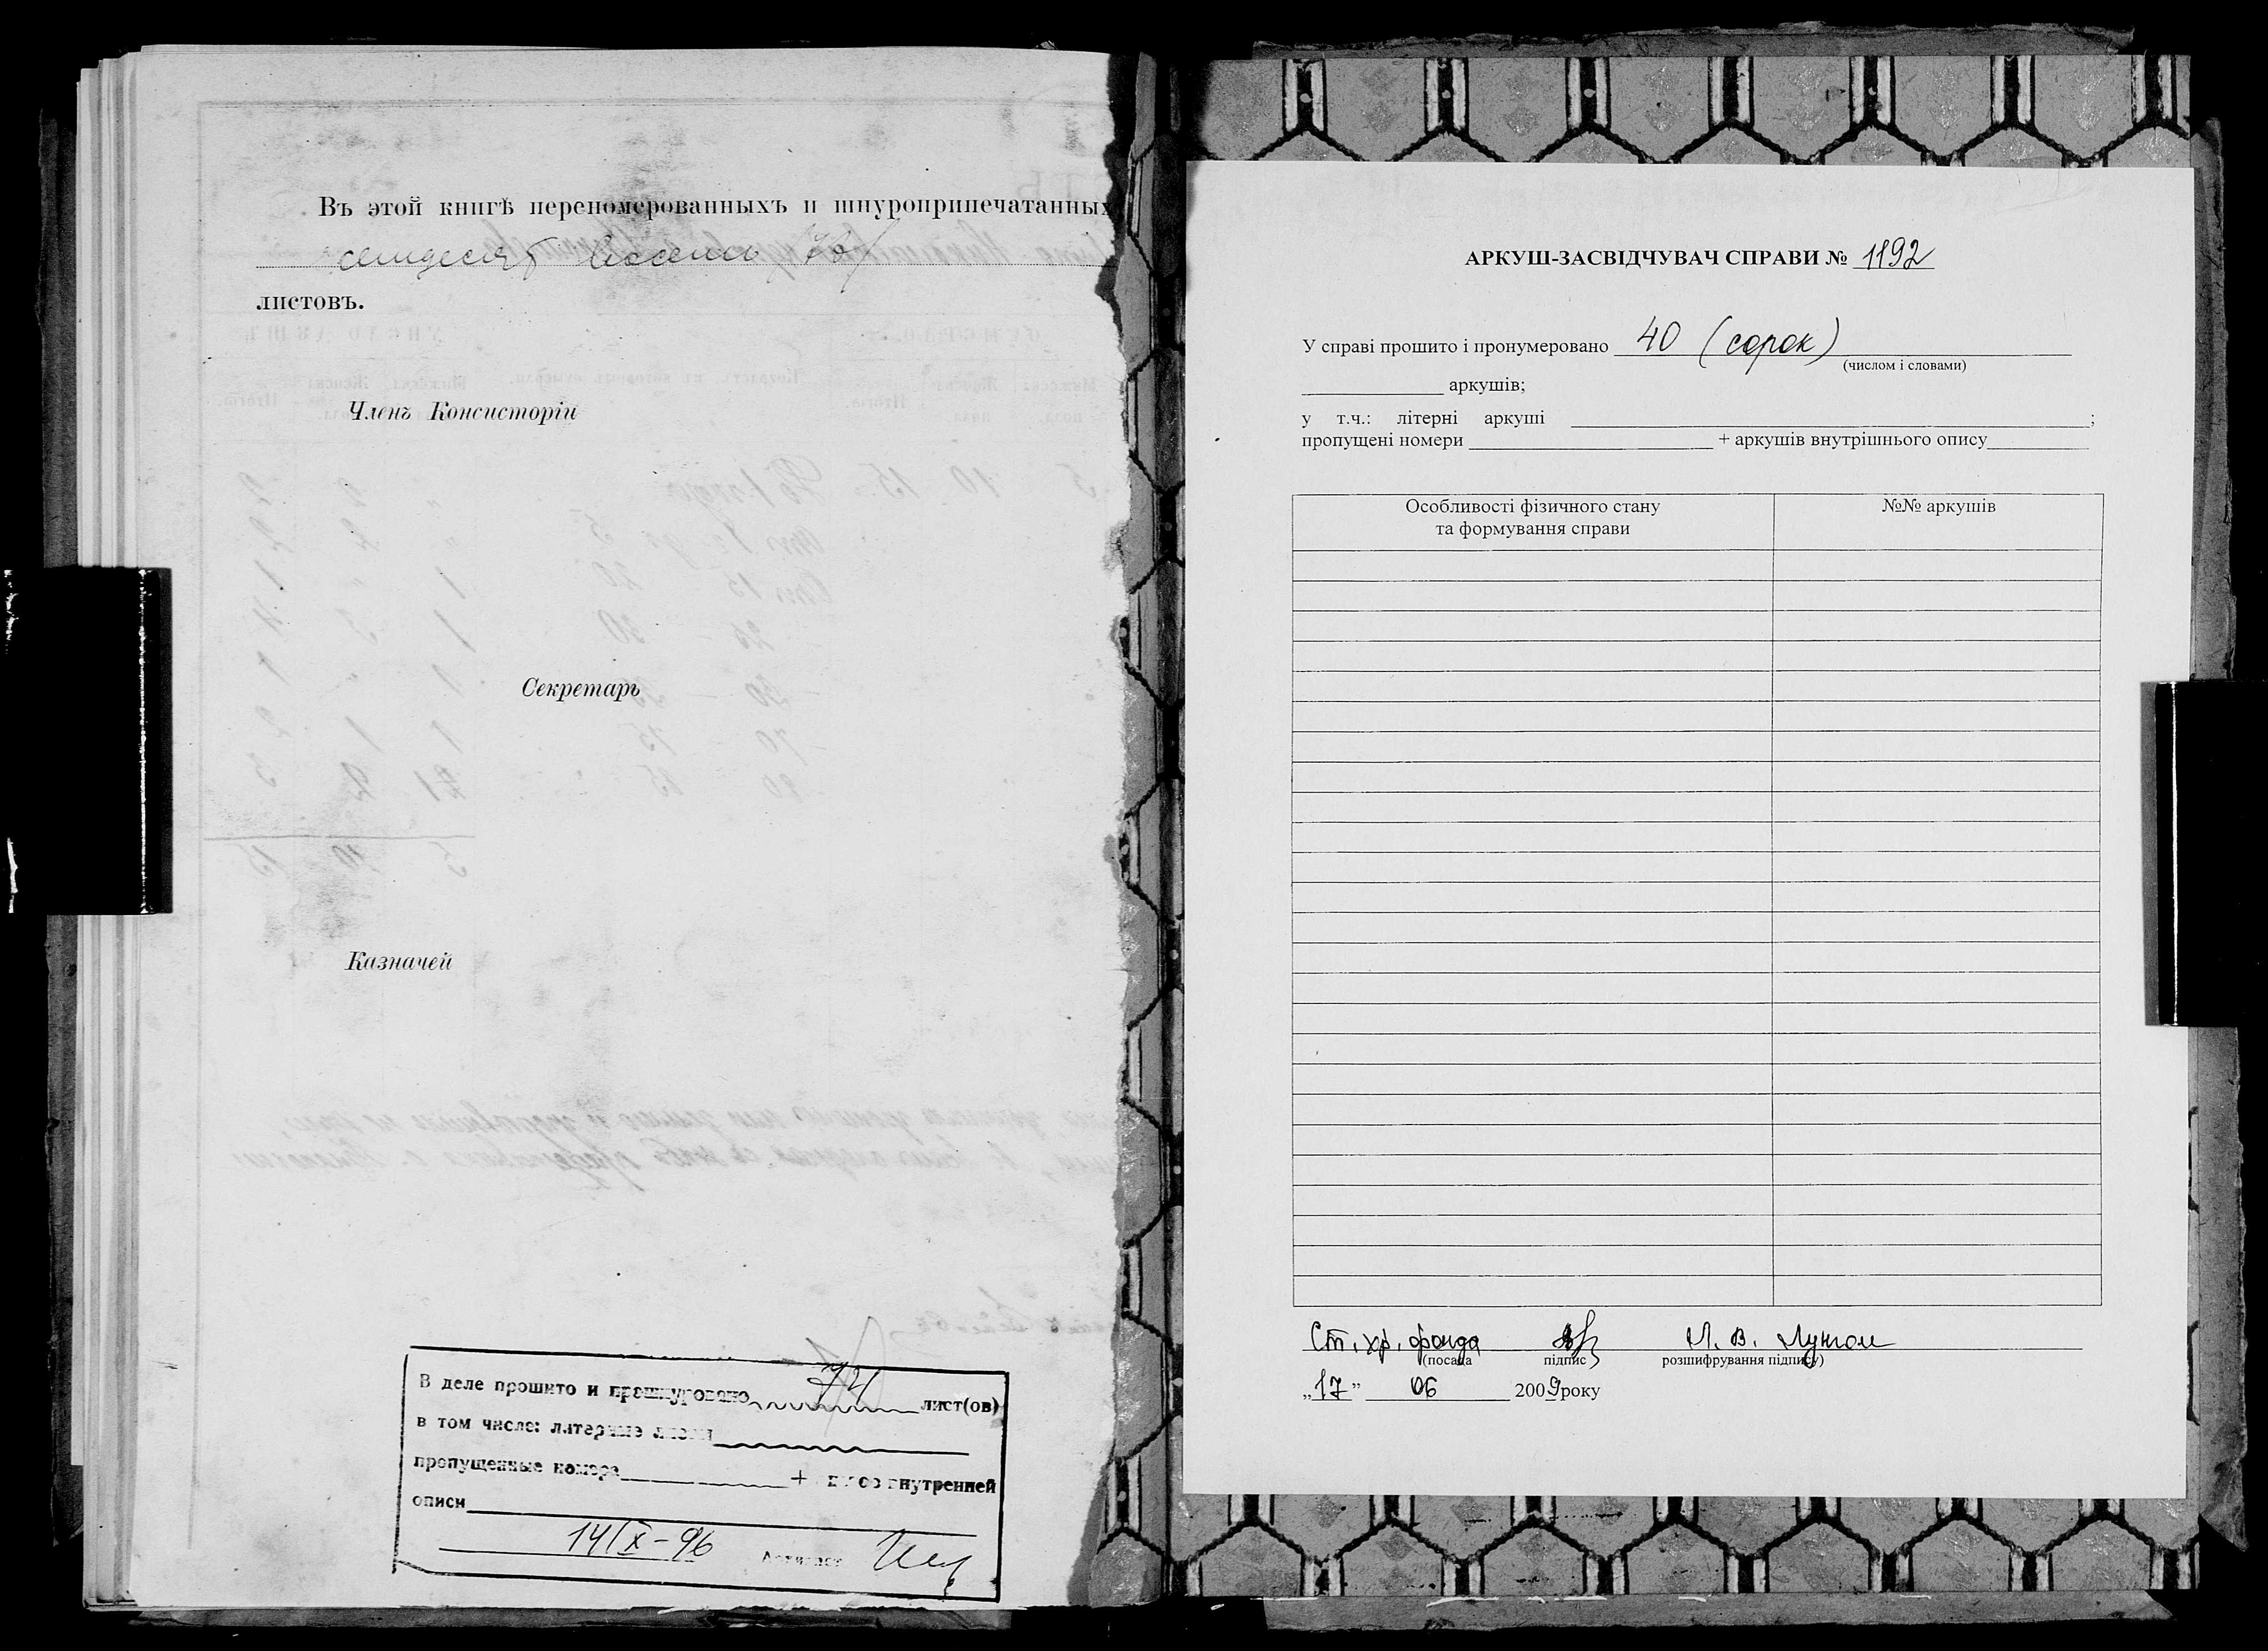 Въ этой книгѣ переномерованныхъ и шнуроприпечатанныхъ
семдесят восемь /78/
листовъ.
Членъ Консисторіи
Секретарь
Казначей
В деле прошито и прошнуровано 74 лист(ов)
в том числе: литерные листы
пропущенные номера + внутренней
описи
14/IX-96
АРКУШ-ЗАСВІДЧУВАЧ СПРАВИ № 1192
У справі прошито і пронумеровано 40 (сорок)
(числом і словами)
аркушів;
у т.ч.: літерні аркуші ;
пропущені номери + аркушів внутрішнього опису
Особливості фізичного стану №№ аркушів
та формування справи
Ст. хр. фонда Л. В.
(посада підпис розшифрування підпису)
„17” 06 2009 року